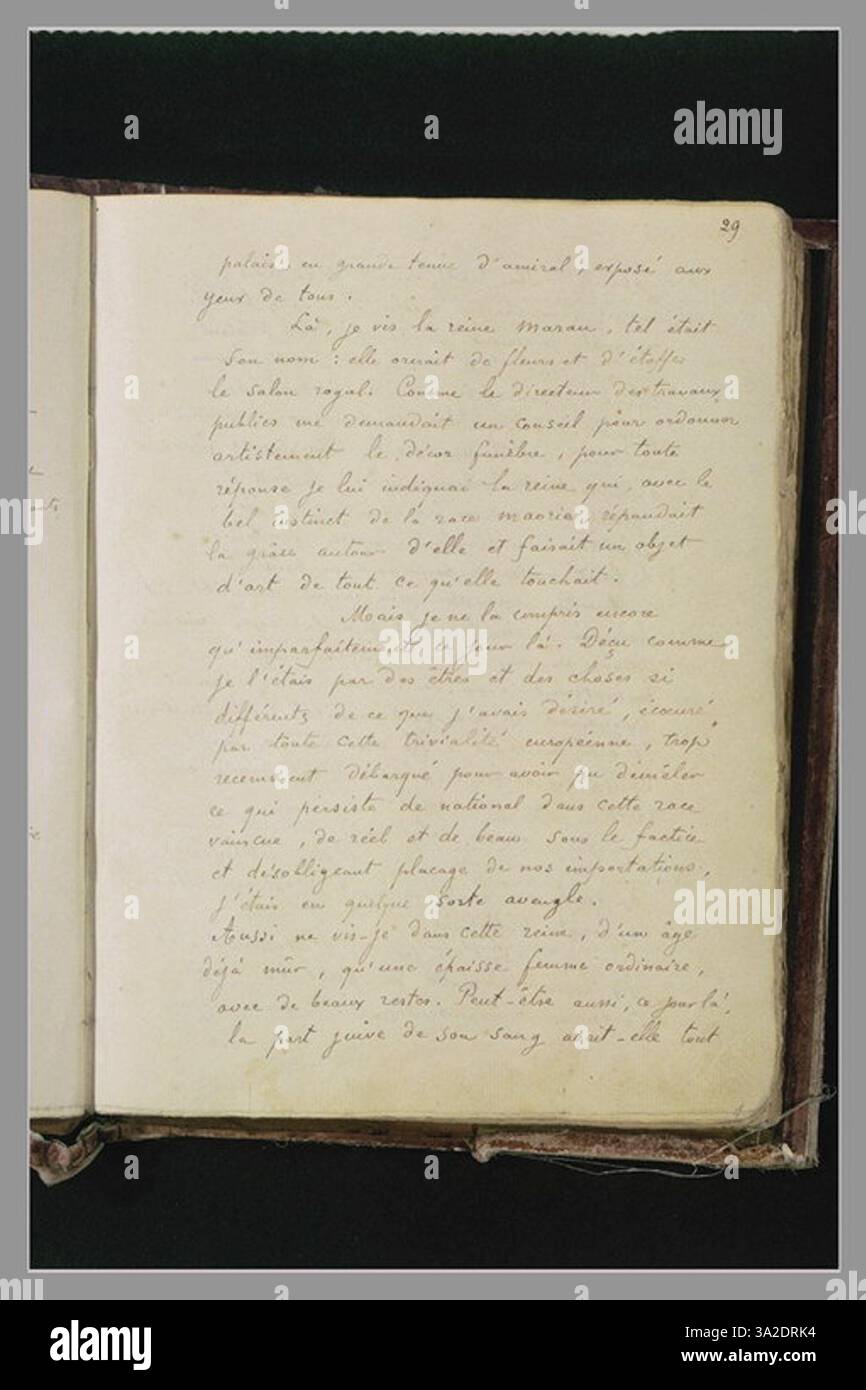 29
palais, en grande tenue d'amiral, exposé aux
yeux de tous.
Là, je vis la reine Marau, tel était
son nom : elle ornait de fleurs et d'étoffes
le salon royal. Comme le directeur des travaux
publics me demandait un conseil pour ordonner
artistement le décor funèbre, pour toute
réponse je lui indiquai la reine qui, avec le
bel instinct de la race maorie, répandait
la grâce autour d'elle et faisait un objet
d'art de tout ce qu'elle touchait.
Mais je ne la compris encore
qu'imparfaitement, ce jour là. Déçu comme
je l'étais par des êtres et des choses si
différents de ce que j'avais désiré, écœuré
par toute cette trivialité européenne, trop
recemment débarqué pour avoir pu démêler
ce qui persiste de national dans cette race
vaincue, de réel et de beau sous le factice
et désobligeant placage de nos importations,
j'étais en quelque sorte aveugle.
Aussi ne vis-je dans cette reine, d'un âge
déjà mûr, qu'une épaisse femme ordinaire,
avec de beaux restes. Peut-être aussi, ce jour là,
la part juive de son sang avait-elle tout
alamy
alamy
3A2DRK4
www.alamy.com